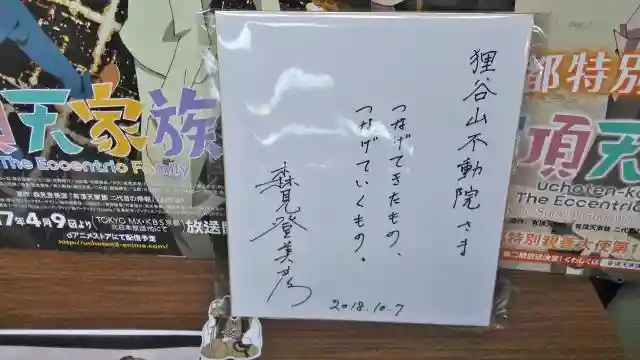 狸谷山不動院さま
つなげてきたもの、
つなげていくもの。
森見登美彦
2018.10.7
頂天家族
The Eccentric Family
17年4月9日より
(TOKYO MX・KBS京都)
放送
dアニメストアにて配信予定
http://uchoten2-anime.com/
都特別
頂天
uchoten-k
The Eccentric
特別親善大使